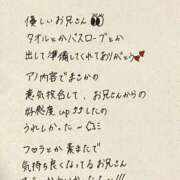 優しいお兄さん👀
タオルとかバスローブとか
出して準備してくれてありがとう💕
アノ内容でまさかの
意気投合して、お兄さんからの
好感度up⇧⇧したの
うれしかった〜
フロラとか 素きたで
気持ち良くなってるお兄さん